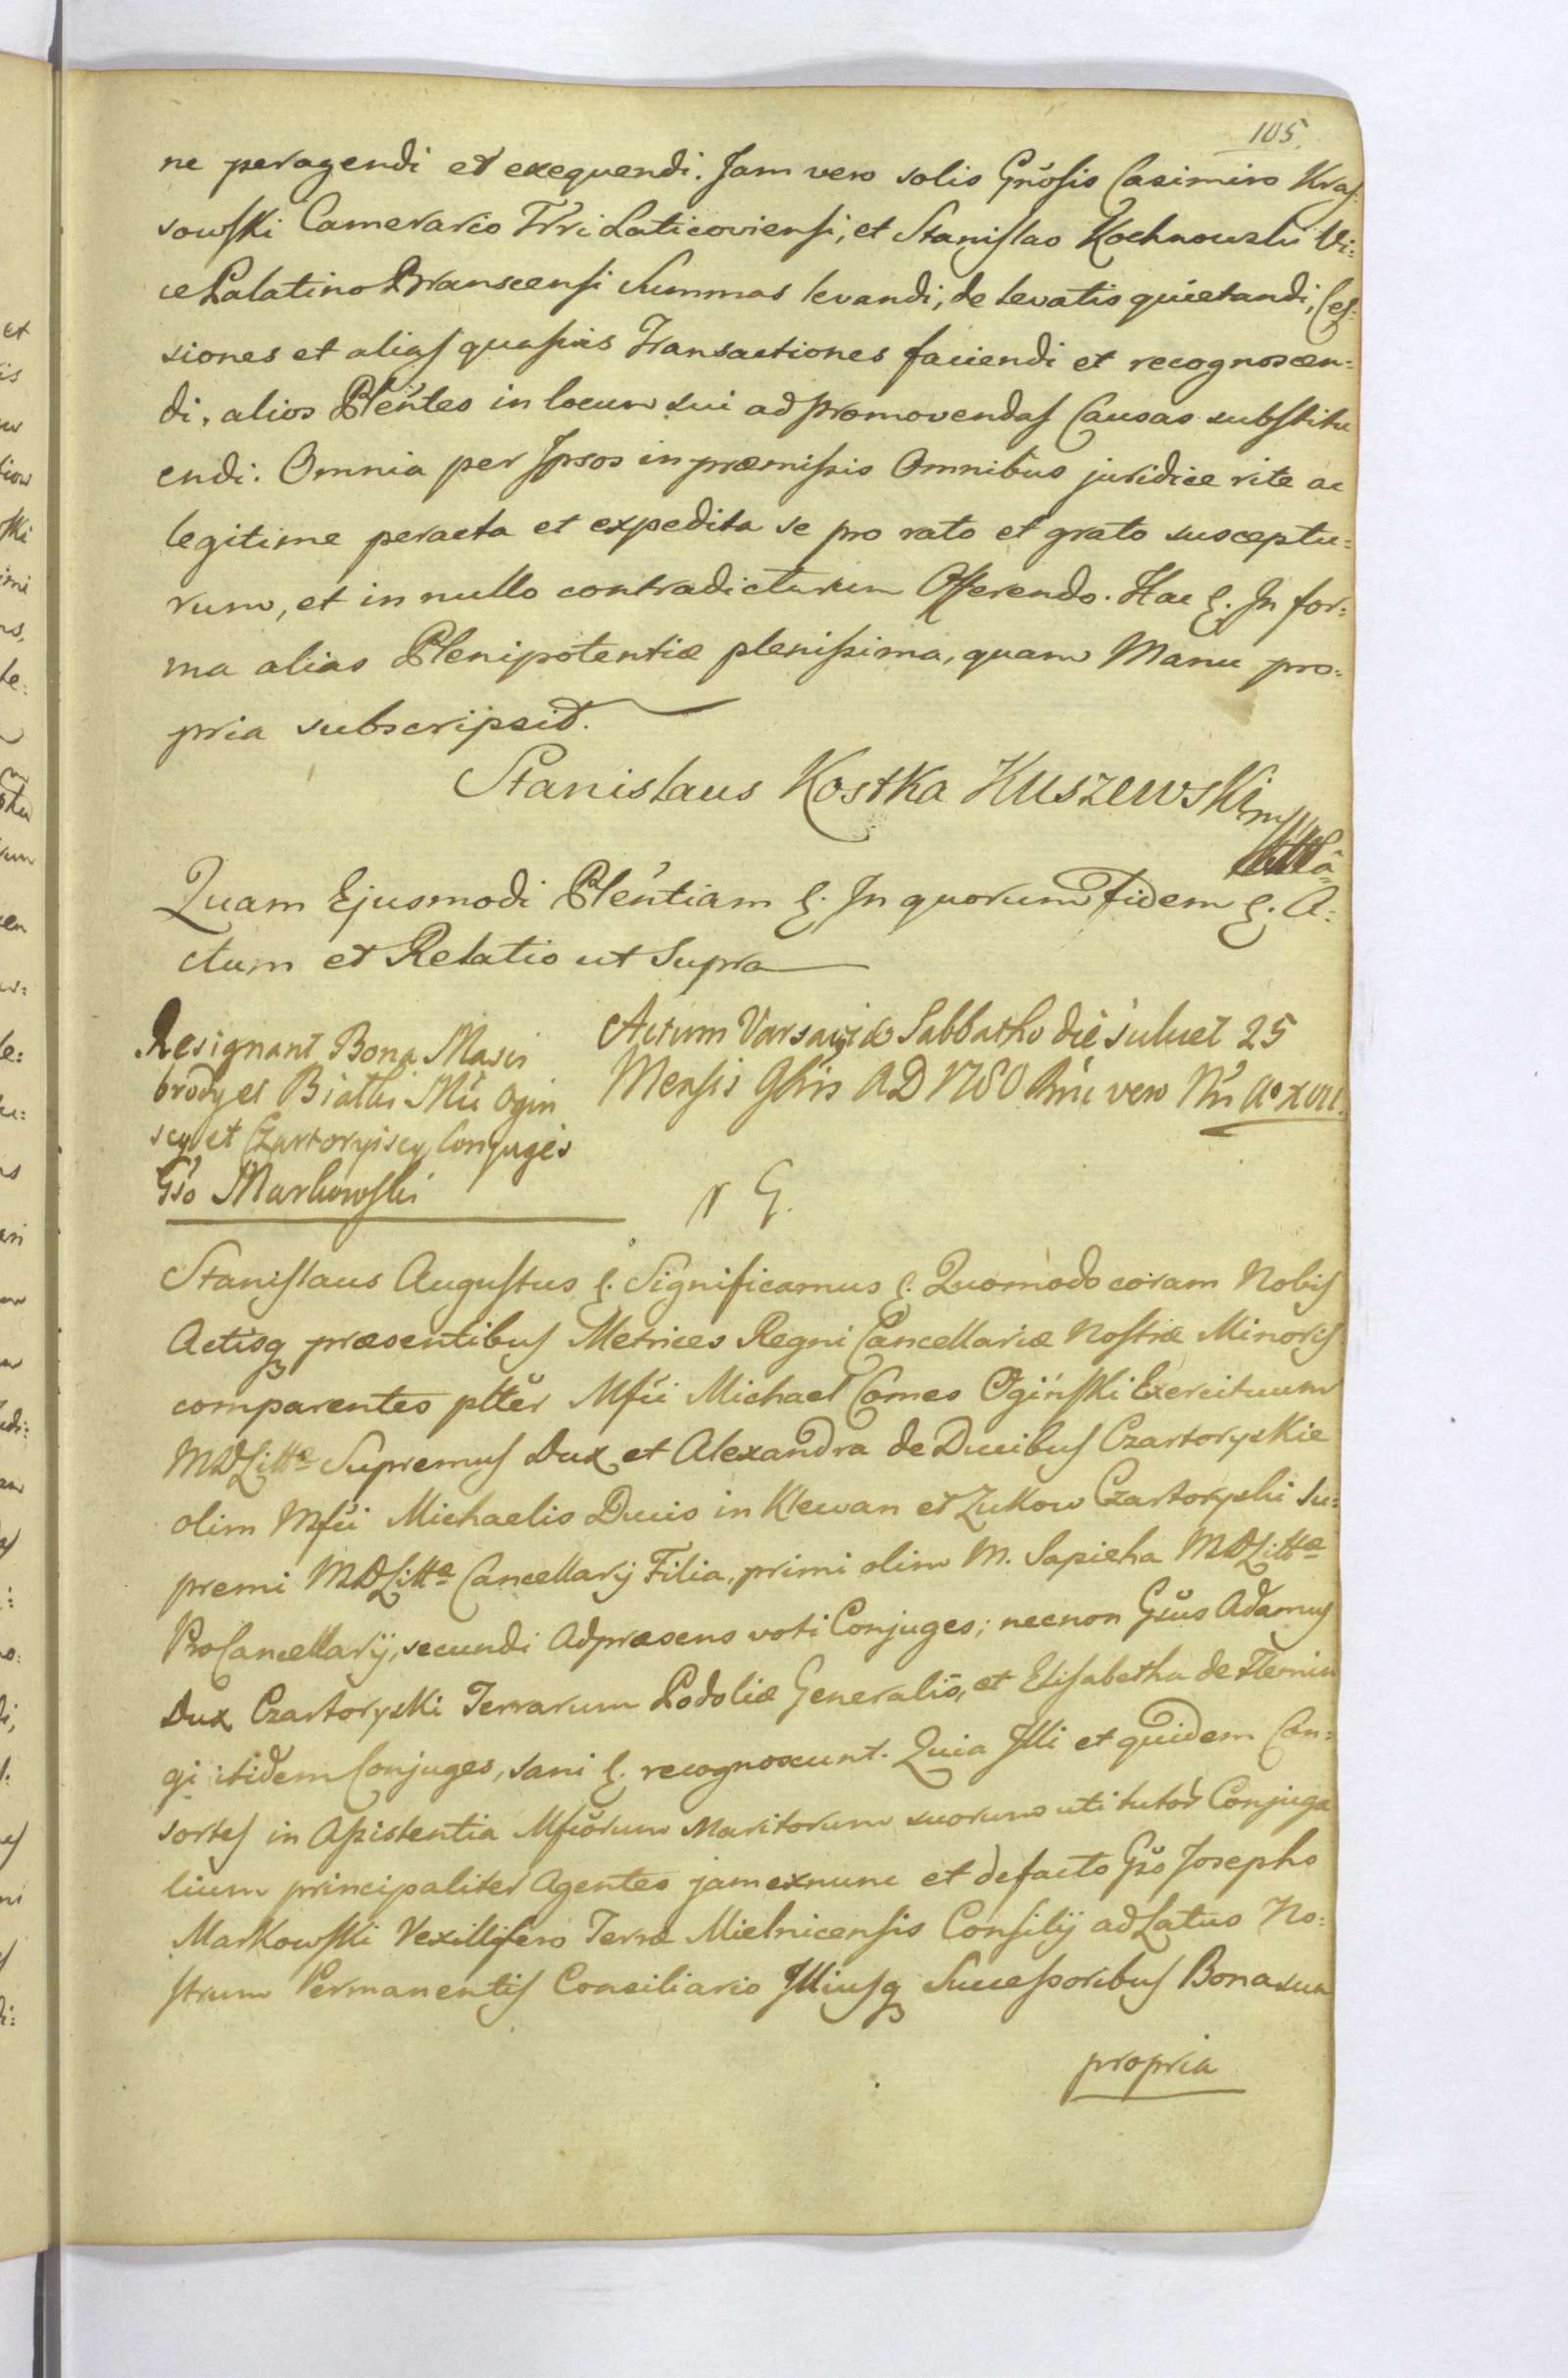 105.
ne peragendi et exequendi. Jam vero solis Gnŏsis Casimiro Kras=
sowski Camerario Trri Laticoviensi, et Stanislao Kochnowski Vi=
cePalatino Branscensi Summas levandi, de levatis quietandi, Ces=
siones et alias quasvis Transactiones faciendi et recognoscen=
di, alios Plentes in locum sui ad promovendas Causas substitu
endi. Omnia per Ipsos in præmissis Omnibus juridice rite ac
legitime peracta et expedita se pro rato et grato susceptu=
rum, et in nullo contradicturum Offerendo. Hac &. In for=
ma alias Plenipotentiæ plenissima, quam Manu pro=
pria subscripsit.
Stanislaus Kostka Kuszewski mp
Quam Ejusmodi Plentiam &. In quorum fidem &. A=
ctum et Relatio ut Supra
Resignant Bona Masie
brody et Biatki Mŭ Ogin
scy et Czartoryiscy Conjuges
Gso Markowski
Actum Varsaviæ Sabbatho die 25
Mensis 9bris AD 1780 vero Ni Ao XVII.
N G.
Stanislaus Augustus &. Significamus &. Quomodo coram Nobis
Actisq præsentibus Metrices Regni Cancellariæ Nostræ Minoris
comparentes plter Mfŭi Michael Comes Ogiński Exercituum
MDLittæ Supremus Dux et Alexandra de Ducibus Czartoryskie
olim Mfŭi Michaelis Ducis in Klewan et Zukow Czartoryski Su=
premi MDLittæ Cancellarij Filia, primi olim M. Sapieha MDLittæ
ProCancellarij, secundi Adpræsens voti Conjuges; necnon Gsŭs Adamus
Dux Czartoryski Terrarum Podoliæ Generalis, et Elisabetha de Flemin
gi itidem Conjuges, sani &. recognoscunt. Quia Illi et quidem Con=
sortes in Assistentia Mfŏrum Maritorum suorum uti tutor Conjuga
lium principaliter Agentes jam exnunc et defacto Gso Josepho
Markowski Vexillifero Terræ Mielnicensis Consilij ad Latus No=
strum Permanentis Consiliario Illiusq Successoribus Bona sua
propria